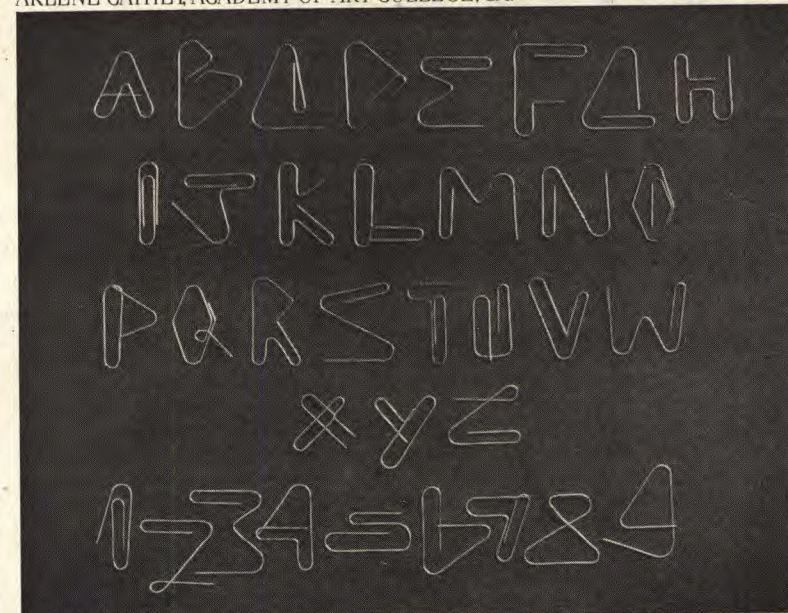 ARLENE ACADEMY OF ART COLLEGE,
A B C D E F G H
I J K L M N O
P Q R S T U V W
X Y Z
1 2 3 4 5 6 7 8 9